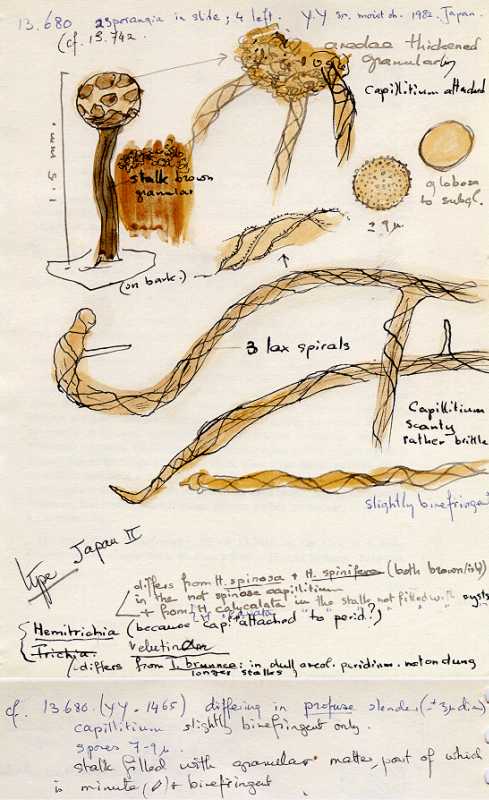 13.680 2 sporangia in slide; 4 left. Y.Y sr. moist ch. 1982. Japan.
(cf. 13.742.
areolae thickened
granularly
Capillitium attached
1.5 mm
stalk brown
granular
globose
to subgl.
± 9 µ
(on bark.)
3 lax spirals
Capillitium
scanty
rather brittle
slightly birefringent
type Japan II
differs from H. spinosa + H. spinifera (both brown/ish)
in the not spinose capillitium
+ from H. calyculata in the stalk not filled with cysts
H. clavata " " "
Hemitrichia (because capill attached to perid?)
Trichia. velutina
differs from T. brunnea: in dull areol. peridium. not on dung
longer stalks
cf. 13.686. (YY. 1465) differing in profuse slender (± 3 µ diam)
capillitium slightly birefringent only.
spores 7-9 µ.
stalk filled with granular matter, part of which
is minute + birefringent